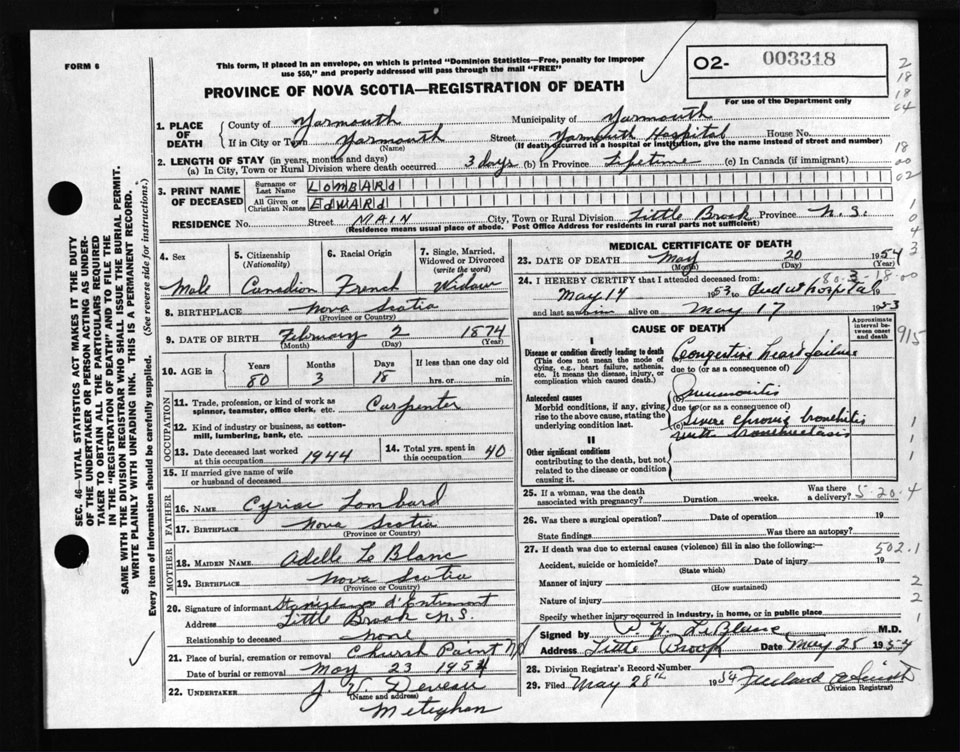 FORM 6
This form, if placed in an envelope, on which is printed "Dominion Statistics—Free, penalty for improper
use $50," and properly addressed will pass through the mail "FREE"
O2- 003318
For use of the Department only
PROVINCE OF NOVA SCOTIA—REGISTRATION OF DEATH
1. PLACE OF DEATH County of Yarmouth Municipality of Yarmouth
If in City or Town Yarmouth (Name) Street Yarmouth Hospital House No.
(If death occurred in a hospital or institution, give the name instead of street and number)
2. LENGTH OF STAY (in years, months and days)
(a) In City, Town or Rural Division where death occurred 3 days (b) in Province Lifetime (c) In Canada (if immigrant)
3. PRINT NAME OF DECEASED Surname or Last Name LOMBARd
All Given or Christian Names EdWARd
RESIDENCE No. Street MAIN City, Town or Rural Division Little Brook Province N.S.
(Residence means usual place of abode. Post Office Address for residents in rural parts not sufficient)
4. Sex Male
5. Citizenship (Nationality) Canadian
6. Racial Origin French
7. Single, Married, Widowed or Divorced (write the word) Widow
8. BIRTHPLACE Nova Scotia
(Province or Country)
9. DATE OF BIRTH February 2 1874
(Month) (Day) (Year)
10. AGE in Years 80 Months 3 Days 18 If less than one day old hrs. or min.
OCCUPATION
11. Trade, profession, or kind of work as spinner, teamster, office clerk, etc. Carpenter
12. Kind of industry or business, as cotton-mill, lumbering, bank, etc.
13. Date deceased last worked at this occupation 1944
14. Total yrs. spent in this occupation 40
15. If married give name of wife or husband of deceased
FATHER
16. NAME Cyriac Lombard
17. BIRTHPLACE Nova Scotia
(Province or Country)
MOTHER
18. MAIDEN NAME Adelle Le Blanc
19. BIRTHPLACE Nova Scotia
(Province or Country)
20. Signature of informant Stanislaus d'Entremont
Address Little Brook N.S.
Relationship to deceased none
21. Place of burial, cremation or removal Church Point N.S.
Date of burial or removal May 23 1954
22. UNDERTAKER J. V. Deveau
(Name and address)
Meteghan
MEDICAL CERTIFICATE OF DEATH
23. DATE OF DEATH May 20 1954
(Month) (Day) (Year)
24. I HEREBY CERTIFY that I attended deceased from: 80-3-18-00
May 14 1953 to hospital
and last saw him alive on May 17 1953
CAUSE OF DEATH
Approximate interval between onset and death
I
Disease or condition directly leading to death
(This does not mean the mode of dying, e.g., heart failure, asthenia, etc. It means the disease, injury, or complication which caused death.)
(a) Congestive heart failure
due to (or as a consequence of)
Antecedent causes
Morbid conditions, if any, giving rise to the above cause, stating the underlying condition last.
Pneumonitis
due to (or as a consequence of)
(c) Severe chronic bronchitis
with bronchiectasis
II
Other significant conditions
contributing to the death, but not related to the disease or condition causing it.
25. If a woman, was the death associated with pregnancy? Duration weeks. Was there a delivery? 5-20-4
26. Was there a surgical operation? Date of operation 19
State findings Was there an autopsy?
27. If death was due to external causes (violence) fill in also the following:— 502.1
Accident, suicide or homicide? Date of injury 19
(State which)
Manner of injury
(How sustained)
Nature of injury
Specify whether injury occurred in industry, in home, or in public place
Signed by LeBlanc M.D.
Address Little Brook Date May 25 1954
28. Division Registrar's Record Number
29. Filed May 28th 1954
(Division Registrar)
SEC. 46—VITAL STATISTICS ACT MAKES IT THE DUTY
OF THE UNDERTAKER OR PERSON ACTING AS UNDER-
TAKER TO OBTAIN ALL THE PARTICULARS REQUIRED
IN THE "REGISTRATION OF DEATH" AND TO FILE THE
SAME WITH THE DIVISION REGISTRAR WHO SHALL ISSUE THE BURIAL PERMIT.
WRITE PLAINLY WITH UNFADING INK. THIS IS A PERMANENT RECORD.
Every item of information should be carefully supplied. (See reverse side for instructions.)
2
18
18
04
18
00
02
1
0
4
3
915
1
1
1
2
2
1